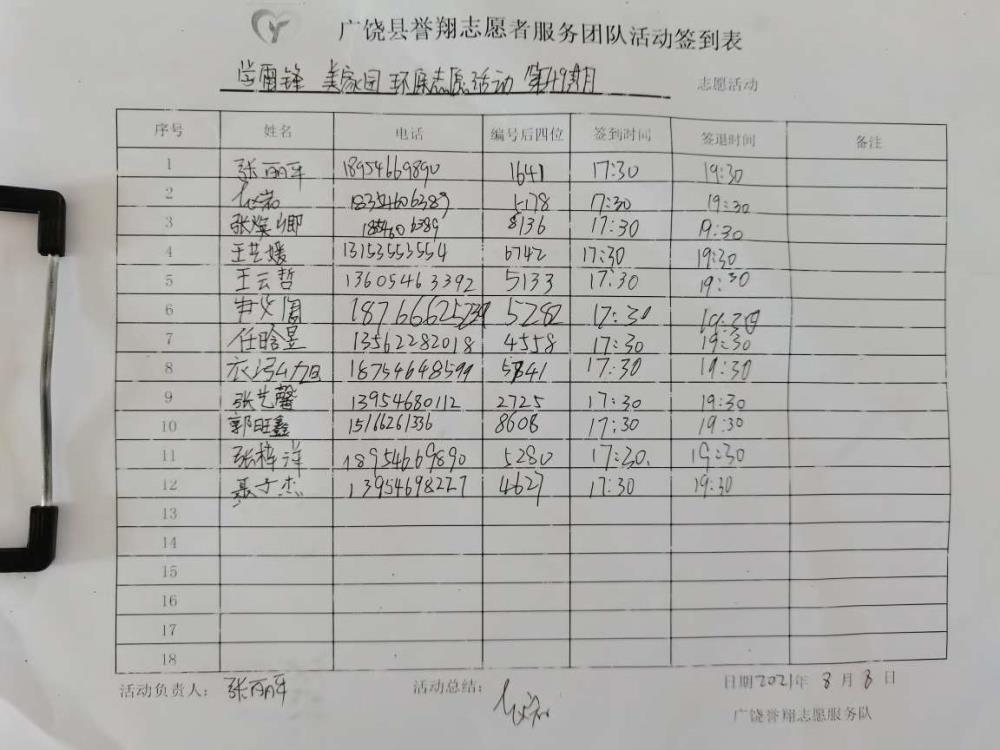 广饶县誉翔志愿者服务团队活动签到表
学雷锋 美家园 环保志愿活动 第49期 志愿活动
序号 姓名 电话 编号后四位 签到时间 签退时间 备注
1 张丽平 18954669890 1641 17:30 19:30
2 18354606389 5178 17:30 19:30
3 张焕卿 8136 17:30 19:30
4 王艺媛 13153553554 6742 17:30 19:30
5 王云哲 13605463392 5133 17:30 19:30
6 5282 17:30 19:30
7 任晗昱 13562282018 4558 17:30 19:30
8 18754648599 17:30 19:30
9 张艺馨 13954680112 2725 17:30 19:30
10 郭旺鑫 15166261336 8608 17:30 19:30
11 张梓洋 18954669890 5280 17:30 19:30
12 聂子杰 13954698227 4627 17:30 19:30
13
14
15
16
17
18
活动负责人: 张丽平 活动总结: 日期2021年 8月8日
广饶誉翔志愿服务队